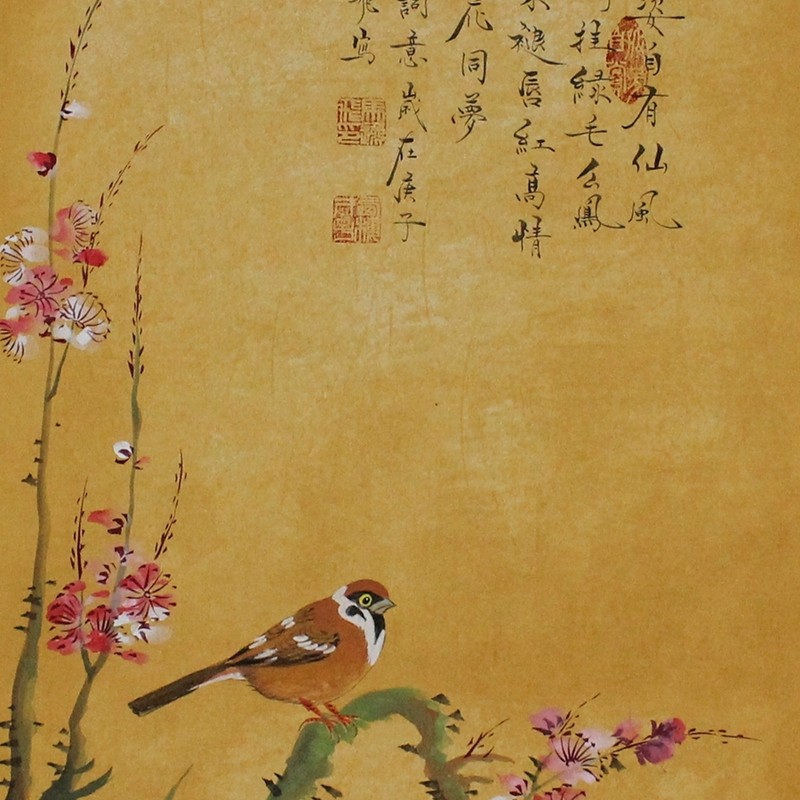 姿自有仙風
挂綠毛么鳳
褪唇紅高情
花同夢
詞意歲在庚子
寫